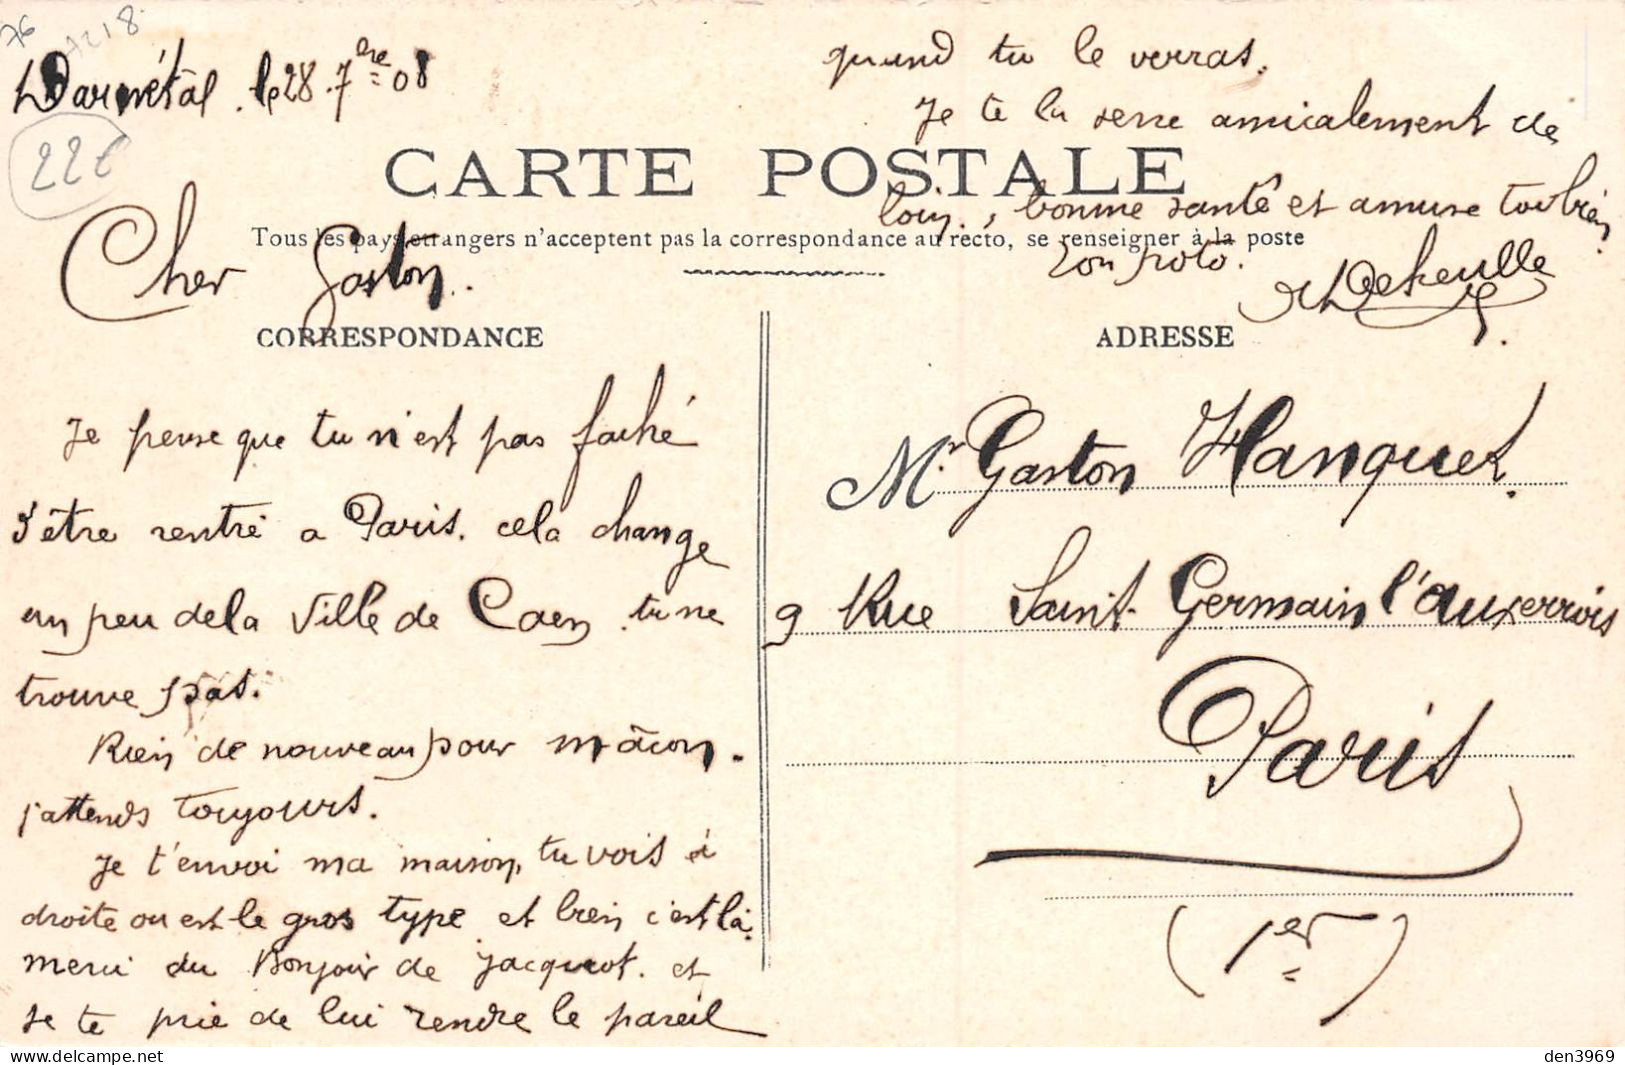 76
Darnétal. le 28. 7bre 08
22€
CARTE POSTALE
Tous les pays étrangers n'acceptent pas la correspondance au recto, se renseigner à la poste
CORRESPONDANCE
Cher Gaston.
Je pense que tu n'est pas faché
d'être rentré a Paris. cela change
un peu de la Ville de Caen. tu ne
trouve pas.
Rien de nouveau pour mâcon.
j'attends toujours.
Je t'envoi ma maison, tu vois à
droite ou est le gros type et bien c'est là.
merci du Bonjour de Jacquot. et
je te prie de lui rendre le pareil
quand tu le verras.
Je te la serre amicalement de
loin., bonne santé et amuse toi bien.
Ton poto.
Dekeulle
ADRESSE
Mr. Gaston Hanquet.
9 Rue Saint-Germain l'auxerrois
Paris
(1er)
den3969